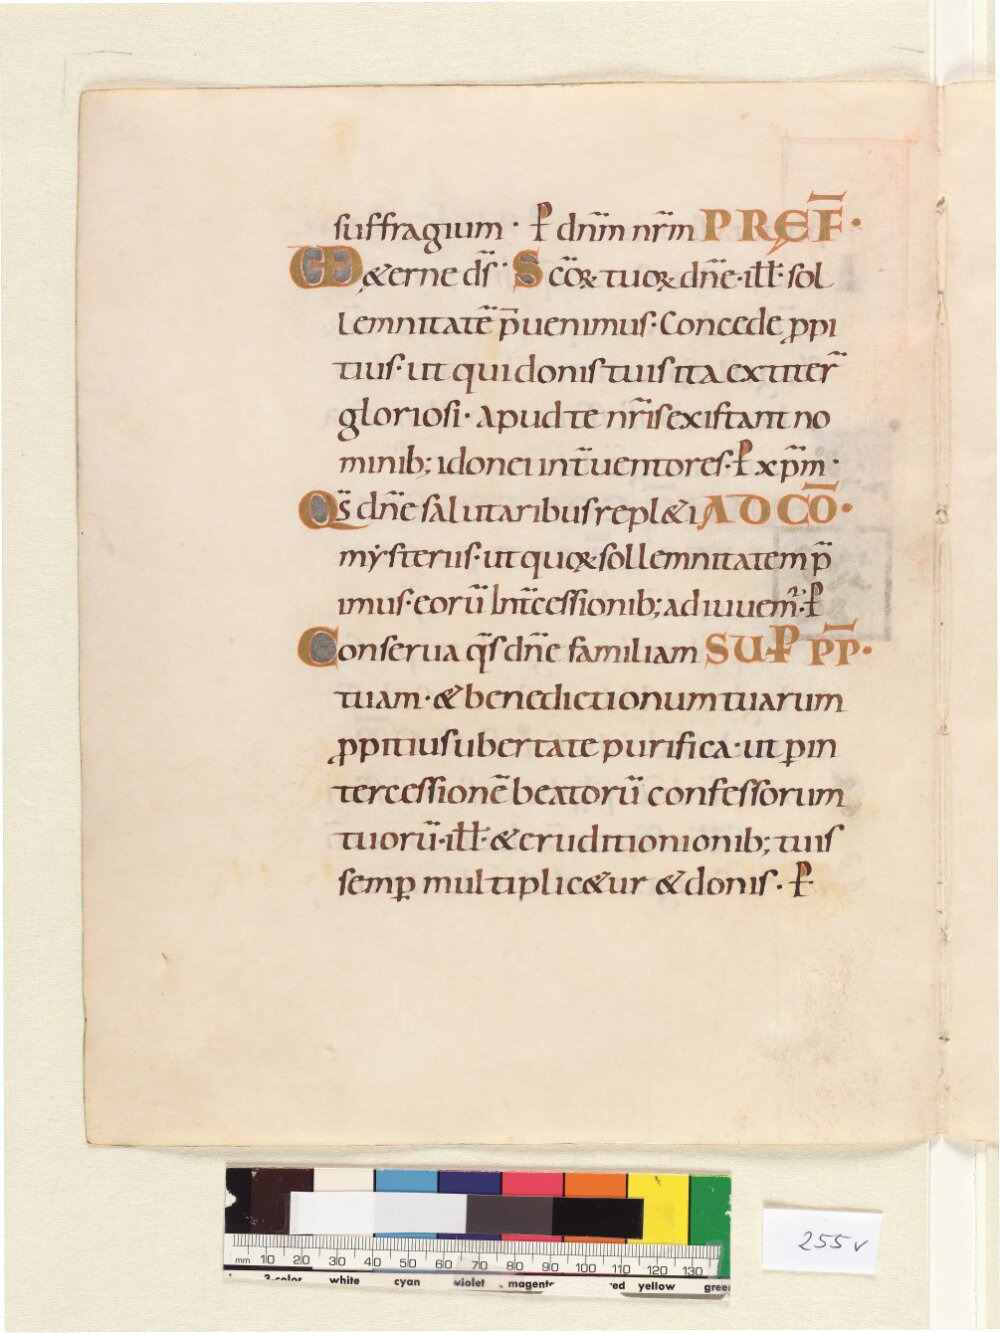 suffragium · ꝑ dn̄m nr̄m PRĘF̄ ·
VD &erne ds̄ · Scōꝝ tuoꝝ dn̄e · ill̄ · sol
lemnitatē p̄uenimus · Concede ꝓpi
tius · ut qui donis tuis ita extiter̄
gloriosi · apud te nr̄is existant no
minib; idonei int̄uentores · ꝑ xp̄m ·
Qs̄ dn̄e salutaribus repl&i AD CŌ ·
mẏsteriis · ut quoꝝ sollemnitatem p̄
imus · eorū Int̄cessionib; adiuuem᷑ · ꝑ
Conserua qs̄ dn̄e familiam SUP PP̄ ·
tuam · & benedictionum tuarum
ꝓpitius ubertate purifica · ut ꝑ in
tercessionē beatorū confessorum
tuorū · ill̄ · & eruditionionib; tuis
semꝑ multiplic&ur & donis · ꝑ ·
255v
mm 10 20 30 40 50 60 70 80 90 100 110 120 130
3-color white cyan violet magenta red yellow green